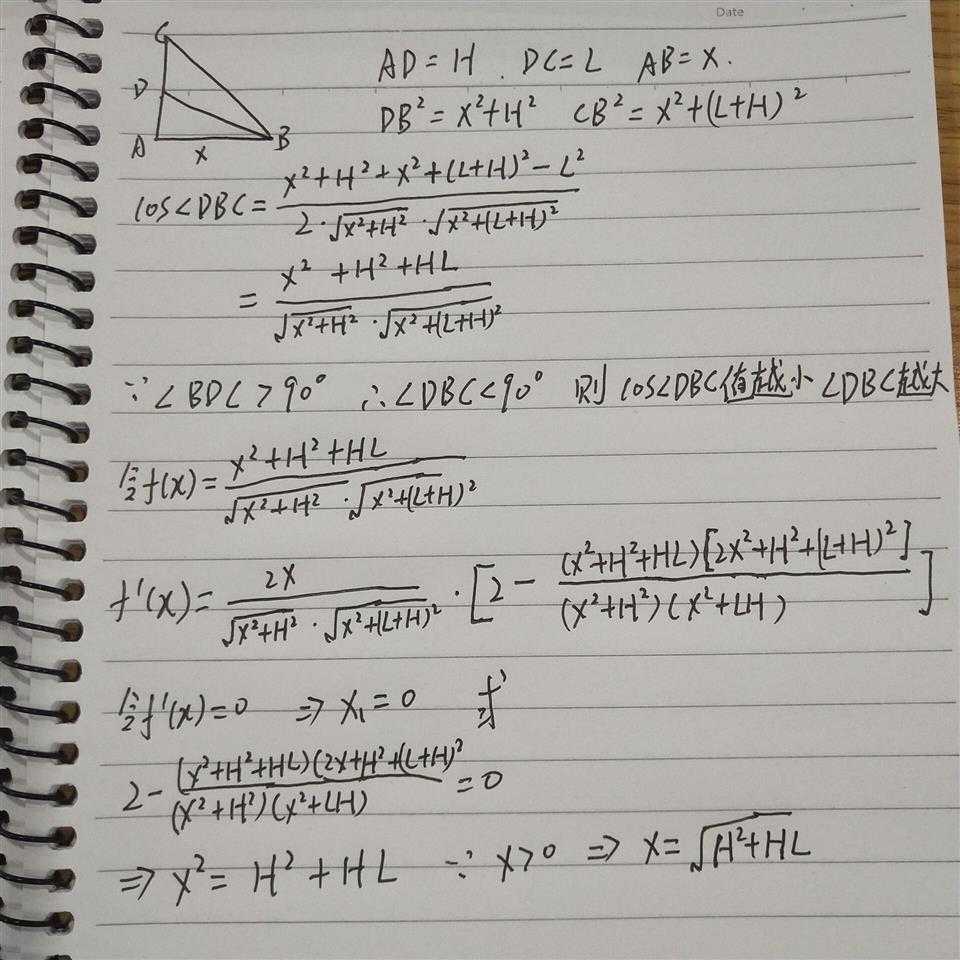 Date
C
D
A
x
B
AD = H . DC = L AB = X .
DB² = X² + H² CB² = X² + (L+H)²
cos∠DBC = \frac{X²+H²+X²+(L+H)²-L²}{2·\sqrt{X²+H²}·\sqrt{X²+(L+H)²}}
= \frac{X²+H²+HL}{\sqrt{X²+H²}·\sqrt{X²+(L+H)²}}
∵∠BDC>90° ∴∠DBC<90° 则 cos∠DBC值越小∠DBC越大
令f(x) = \frac{X²+H²+HL}{\sqrt{X²+H²}·\sqrt{X²+(L+H)²}}
f'(x) = \frac{2X}{\sqrt{X²+H²}·\sqrt{X²+(L+H)²}}·[2-\frac{(X²+H²+HL)[2X²+H²+(L+H)²]}{(X²+H²)(X²+LH)}]
令f'(x)=0 ⇒ X₁=0
2-\frac{(X²+H²+HL)(2X+H²+(L+H)²}{(X²+H²)(X²+LH)}=0
⇒ X² = H² + HL ∵ X>0 ⇒ X=\sqrt{H²+HL}